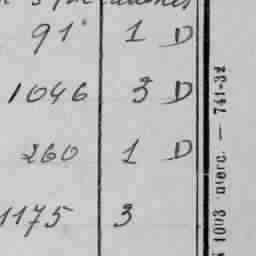 91 1 D
1046 3 D
260 1 D
1175 3
1003 — 741-32